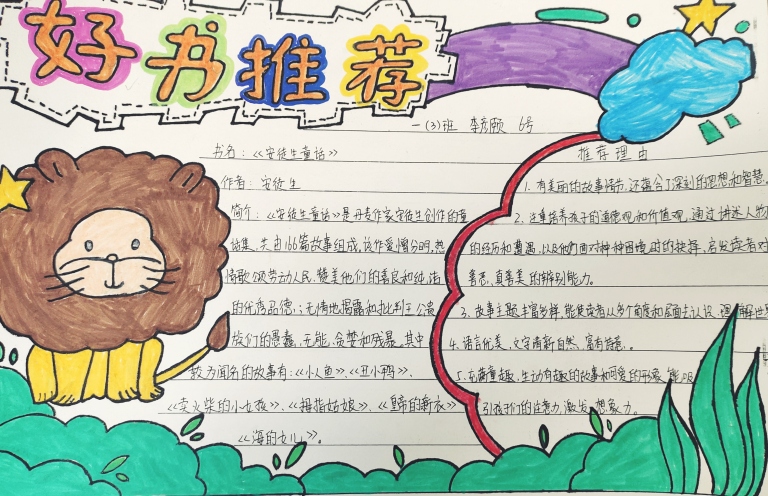 好书推荐
一(3)班 李彦颐 6号
书名：《安徒生童话》
作者：安徒生
简介：《安徒生童话》是丹麦作家安徒生创作的童
话集，共由166篇故事组成，该作爱憎分明，热
情歌颂劳动人民，赞美他们的善良和纯洁
的优秀品德；无情地揭露和批判王公贵
族们的愚蠢、无能、贪婪和残暴。其中
较为闻名的故事有：《小人鱼》、《丑小鸭》、
《卖火柴的小女孩》、《拇指姑娘》、《皇帝的新衣》
《海的女儿》。
推荐理由
1. 有美丽的故事情节，还蕴含了深刻的思想和智慧。
2. 注重培养孩子的道德观和价值观，通过讲述人物
的经历和遭遇，以及他们面对种种困境时的抉择，启发读者对
善恶，真善美的辨别能力。
3. 故事主题丰富多样，能使读者从多个角度和层面去认识、理解世界
4. 语言优美、文字清新自然、富有诗意。
5. 充满童趣，生动有趣的故事和可爱的形象，能吸
引孩子们的注意力，激发想象力。